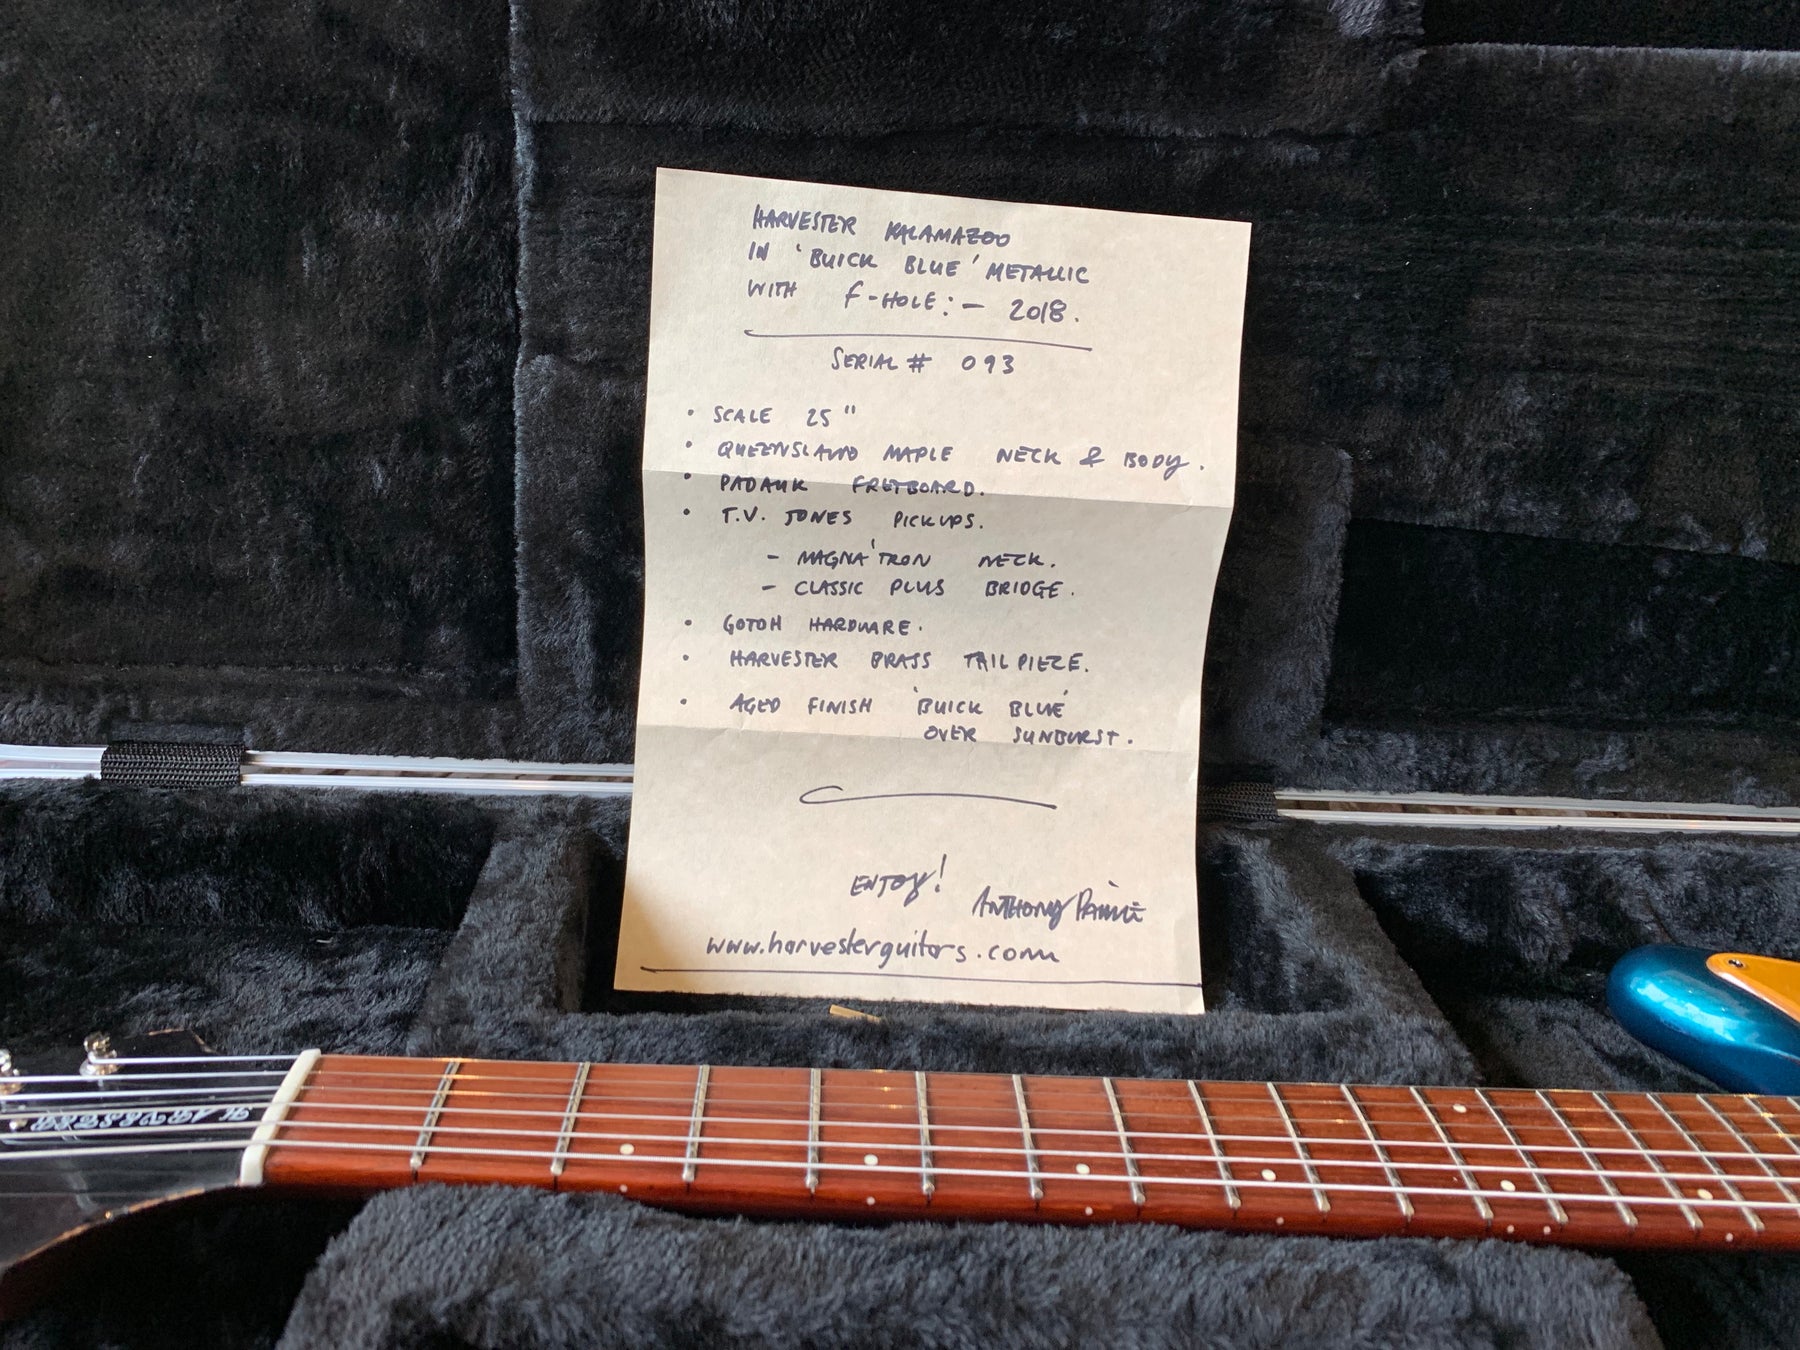 HARVESTER KALAMAZOO
IN 'BUICK BLUE' METALLIC
WITH F-HOLE:- 2018.
SERIAL # 093
• SCALE 25"
• QUEENSLAND MAPLE NECK & BODY.
• PADAUK FRETBOARD.
• T.V. JONES PICKUPS.
- MAGNA'TRON NECK.
- CLASSIC PLUS BRIDGE.
• GOTOH HARDWARE.
• HARVESTER BRASS TAILPIECE.
• AGED FINISH 'BUICK BLUE'
OVER SUNBURST.
ENJOY!
ANTHONY
www.harvesterguitars.com
HARVESTER